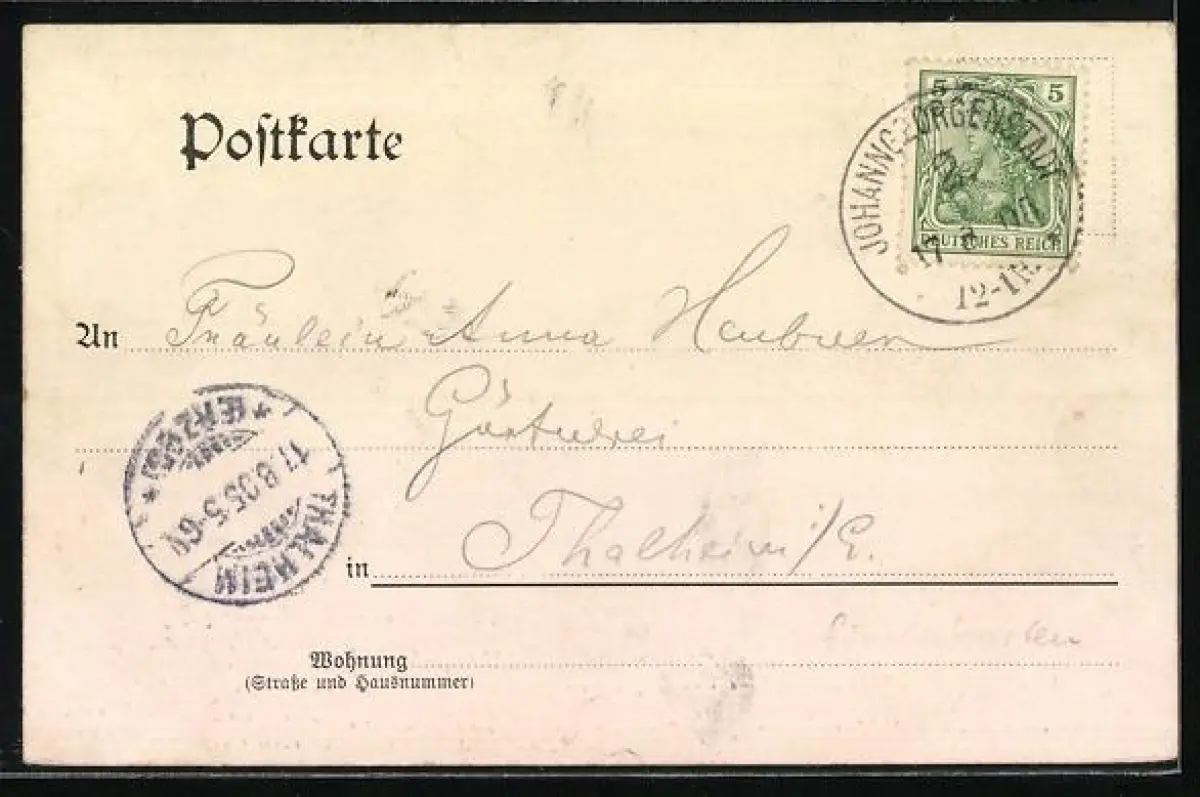 Postkarte
5 5
DEUTSCHES REICH
JOHANNGEORGENSTADT
17 8
12-1N.
An Fräulein Anna Heubner
Gärtnerei
THALHEIM
* (ERZGEB.) *
17.8.05.5-6N
in Thalheim i/E.
Wohnung
(Straße und Hausnummer)